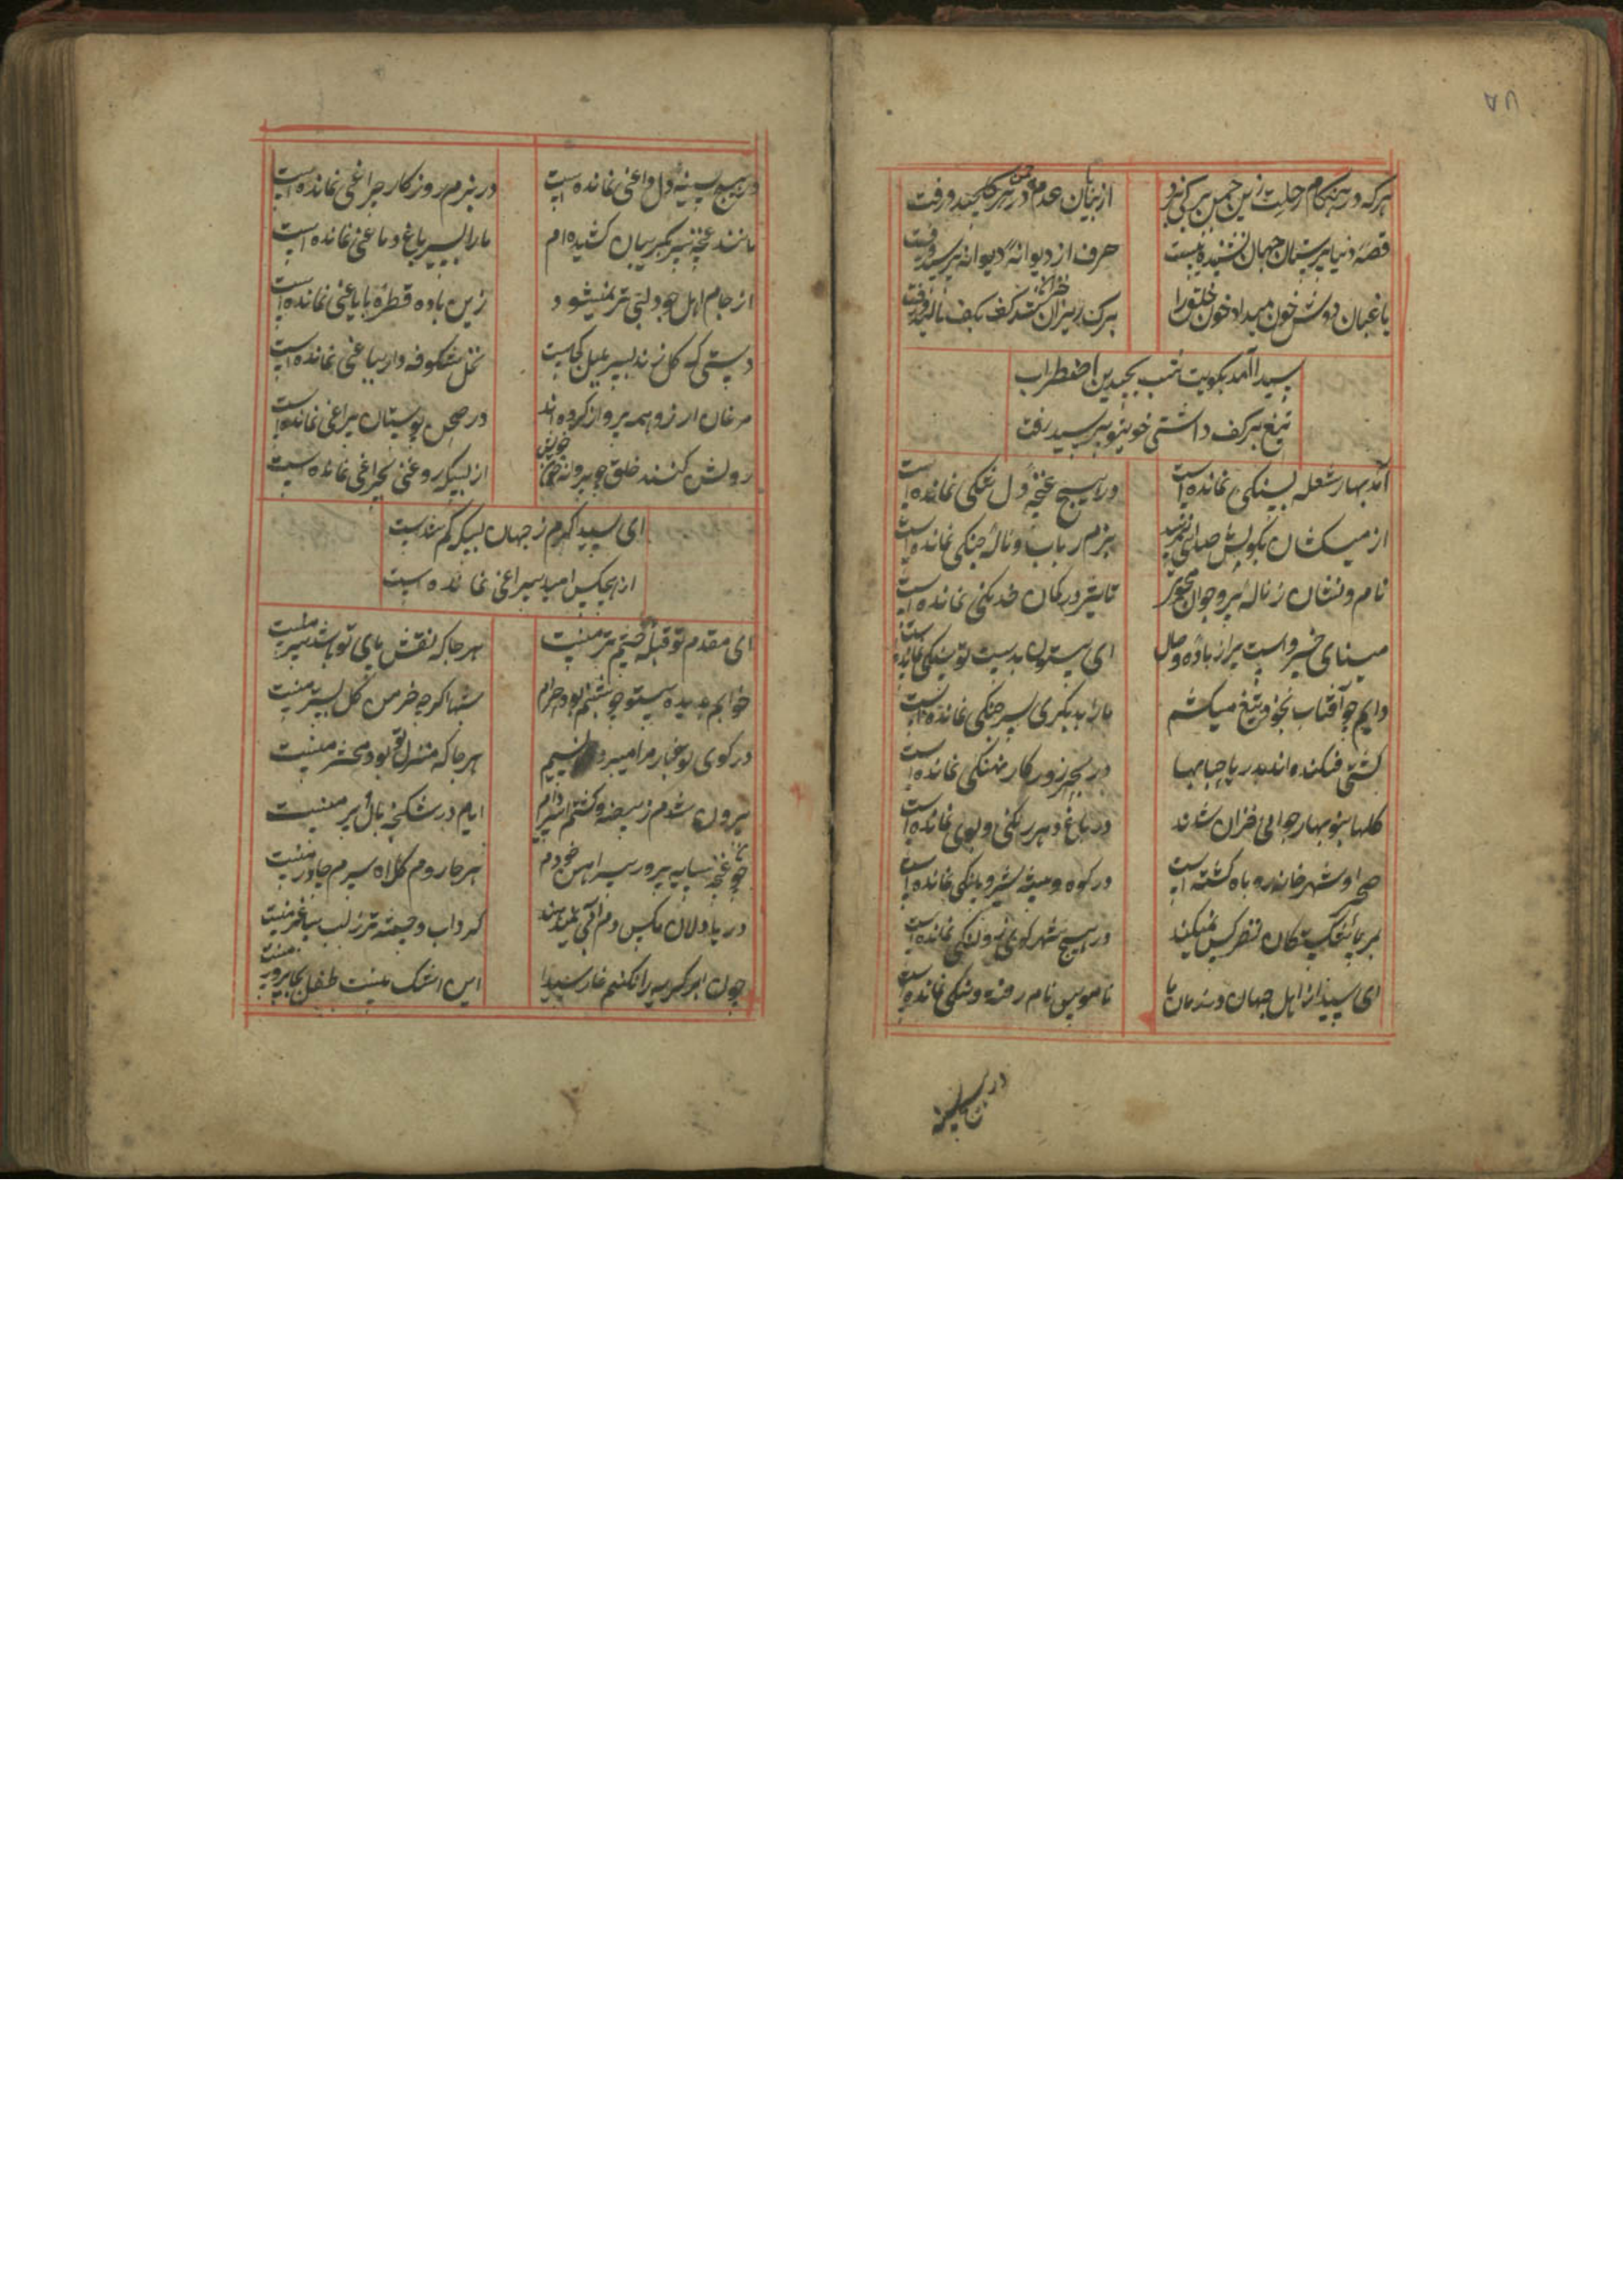 ۷۸
هرکه در هنکام رحلت زین چمن برکی نبرد
از بیابان عدم در هر کلیچند و رفت
قصهٔ دنیا پرستان جهان نشنیده‌ایست
حرف از دیوانهٔ دیوانه پرسید و رفت
باغبان دوش خون میداد خون
برک ریزان شد کف بکف مالید و رفت
سیدا آمد بکویت شب بچندین اضطراب
تیغ بر کف داشتی خوی تو پرسید رفت
آمد بهار شعله بسنکی نمانده است
در هیچ غنچهٔ دل تنکی نمانده است
از میکشان بکوش صدای نمیرسد
بزم رباب و نالهٔ چنکی نمانده است
نام و نشان ز نالهٔ پیر و جوان مجوی
تا تیر در کمان خدنکی نمانده است
مینای خسرو است پر از بادهٔ وصل
ای بیستون بدست تو سنکی نمانده است
دایم چو آفتاب بخود تیغ میکشم
ما را بدیکری سر جنکی نمانده است
کشتی فکنده‌اند بدریا حبابها
در بحر زور کار نهنکی نمانده است
کلها بنوبهار حوالی خزان شدند
در باغ دهر رنکی و بوی نمانده است
صحرا و شهر خانهٔ روباه کشته است
در کوه و بیشه شیر و پلنکی نمانده است
بر پاشکستکان نظر کس نمیکند
در هیچ شهر کوری و لنکی نمانده است
ای سیدا ز اهل جهان در زمان ما
ناموس نام رفته و ننکی نمانده است
در هیچ سینه
در هیچ سینهٔ دل داغی نمانده است
در بزم روزکار چراغی نمانده است
مانند غنچه سر بکریبان کشیده‌ام
ما را بسیر باغ دماغی نمانده است
از جام اهل جود لبی تر نمیشود
زین باده قطرهٔ بایاغی نمانده است
دستی که کل زند بسر بلبل کجاست
نخل شکوفه دار بباغی نمانده است
مرغان ارزو همه پرواز کرده‌اند
در صحن بوستان پر زاغی نمانده است
روشن کنند خلق چو پروانه خویش
از بسکه روغنی بچراغی نمانده است
ای سیدا کرم ز جهان بسکه کم شدست
از هیچکس امید سراغی نمانده است
ای مقدم تو قبلهٔ چشم تر منست
هر جا که نقش پای تو باشد سر منست
خوابم بدیده بیتو چو شبنم بود حرام
شبها اکرچه خرمن کل بستر منست
در کوی تو غبار مرا میبرد نسیم
هر جا که منزل تو بود محشر منست
بیرون شدم ز بیضه و کشتم اسیر دام
ایام در شکنجهٔ بال و پر منست
چو غنچه سایه پرور پیراهن خودم
هر جا روم کلاه سرم چادر منست
دریا دلان مکیس دم آبی نمیدهند
کرداب و چشمه تر ز لب ساغر منست
چون ابر کریه را نکنم خار سیدا
این اشک نیست طفل بجا پرور منست